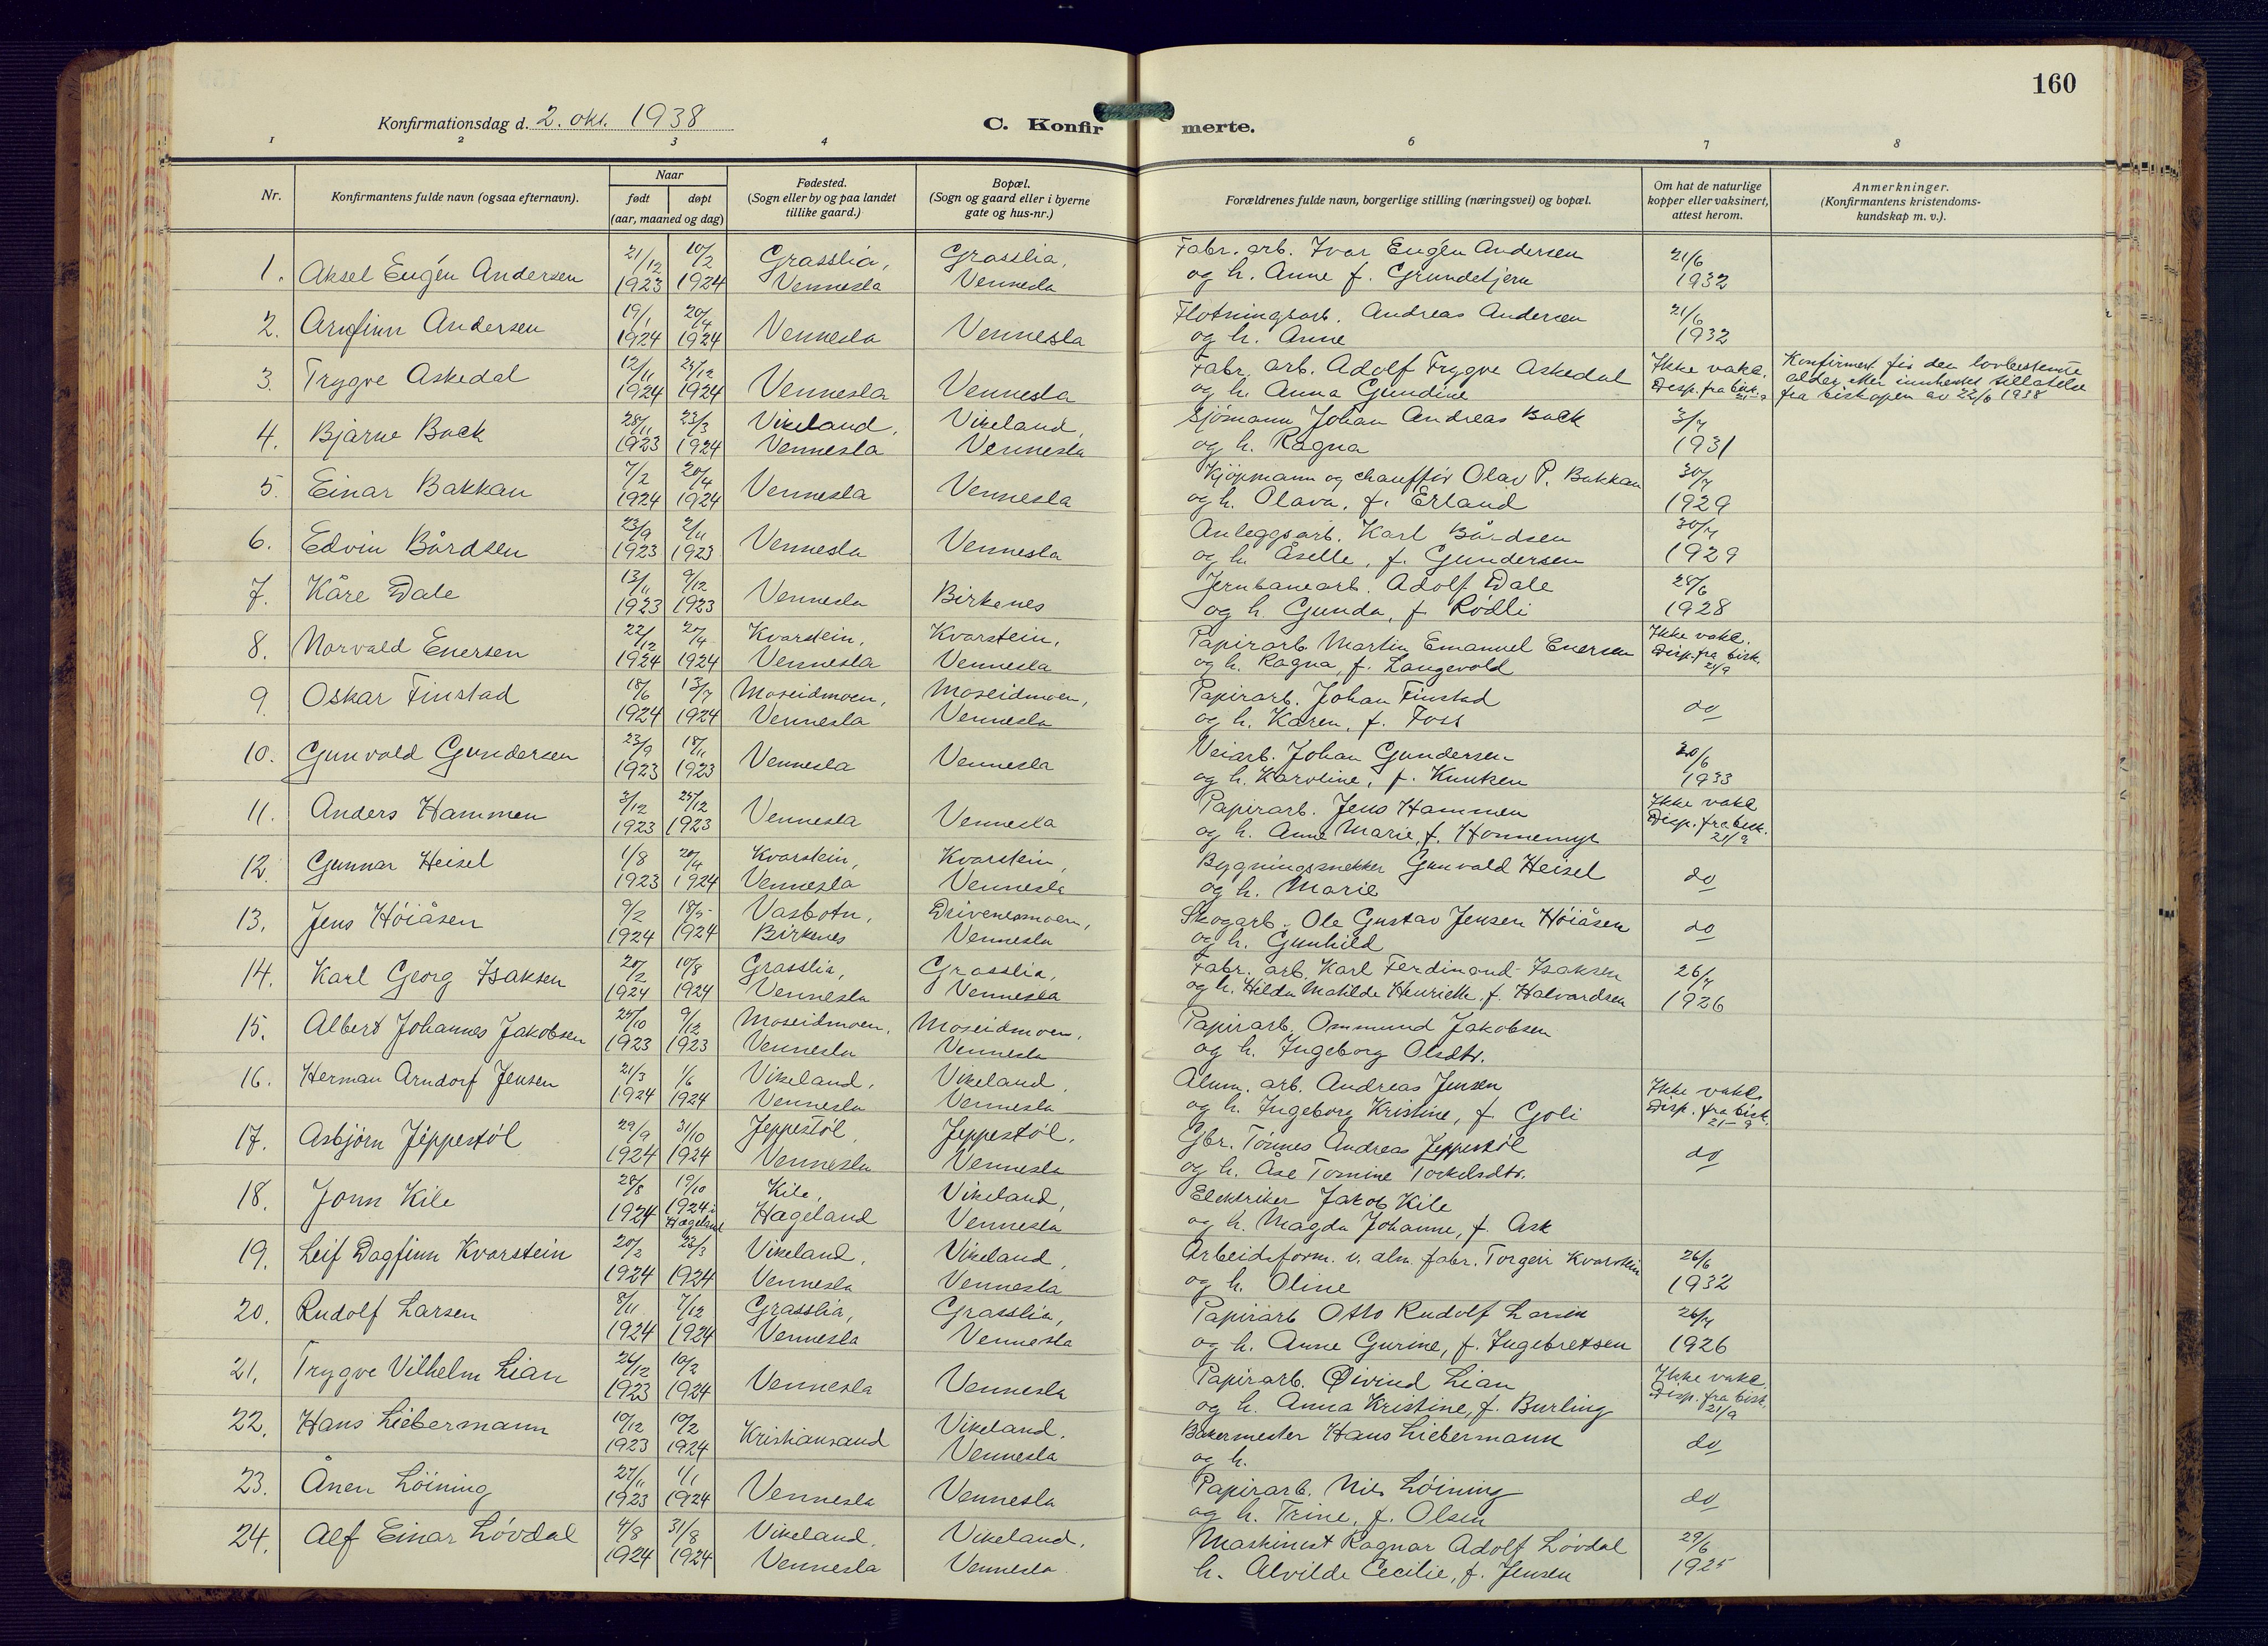 160
Konfirmationsdag d. 2. okt. 1938
C. Konfir merte.
1 2 3 4 5 6 7 8
Nr.
Konfirmantens fulde navn (ogsaa efternavn).
Naar
født døpt
(aar, maaned og dag)
Fødested.
(Sogn eller by og paa landet
tillike gaard.)
Bopæl.
(Sogn og gaard eller i byerne
gate og hus-nr.)
Forældrenes fulde navn, borgerlige stilling (næringsvei) og bopæl.
Om hat de naturlige
kopper eller vaksinert,
attest herom.
Anmerkninger.
(Konfirmantens kristendoms-
kundskap m. v.).
21/12 10/2 Grasslia, Grasslia, Fabr. arb. Ivar Eugén Andersen 21/6
1. Aksel Eugén Andersen 1923 1924 Vennesla Vennesla og h. Anne f. Grundetjern 1932
19/1 20/4 Flotningsarb. Andreas Andersen 21/6
2. Arnfinn Andersen 1924 1924 Vennesla Vennesla og h. Anne 1932
12/11 Fabr. arb. Adolf Trygve Askedal Ikke vaks. Konfirmert før den lovbestemte
3. Trygve Askedal 1924 1924 Vennesla Vennesla og h. Anna Gundine Disp. fra bisk. 21-9 alder etter innhentet tillatelse
fra biskopen av 22/6 1938
28/11 23/3 Vikeland, Vikeland, Sjømann Johan Andreas Back 3/7
4. Bjarne Back 1923 1924 Vennesla Vennesla og h. Ragna 1931
7/2 20/4 Kjøpmann og chauffør Olav P. Bakkan 30/7
5. Einar Bakkan 1924 1924 Vennesla Vennesla og h. Olava, f. Erland 1929
23/9 2/11 Anleggsarb. Karl Bårdsen 30/7
6. Edvin Bårdsen 1923 1923 Vennesla Vennesla og h. Åselle, f. Gundersen 1929
13/11 9/12 Jernbanearb. Adolf Dale 28/6
7. Kåre Dale 1923 1923 Vennesla Birkenes og h. Gunda, f. Rødli 1928
22/12 20/4 Kvarstein, Kvarstein, Papirarb. Martin Emanuel Enersen Ikke vaks.
8. Norvald Enersen 1924 1924 Vennesla Vennesla og h. Ragna, f. Langevold Disp. fra bisk. 21/9
18/6 13/7 Moseidmoen, Moseidmoen, Papirarb. Johan Finstad
9. Oskar Finstad 1924 1924 Vennesla Vennesla og h. Karen, f. Foss do
23/9 18/11 Veiarb. Johan Gundersen 20/6
10. Gunvald Gundersen 1923 1923 Vennesla Vennesla og h. Karoline, f. Knuken 1933
3/12 25/12 Papirarb. Jens Hammen Ikke vaks.
11. Anders Hammen 1923 1923 Vennesla Vennesla og h. Anne Marie, f. Honnemyr Disp. fra bisk. 21/9
1/8 20/4 Kvarstein, Kvarstein, Bygningssnekker Gunvald Heisel
12. Gunnar Heisel 1923 1924 Vennesla Vennesla og h. Marie do
9/2 18/5 Vasbotn, Drivenesmoen, Skogarb. Ole Gustav Jensen Høiåsen
13. Jens Høiåsen 1924 1924 Birkenes Vennesla og h. Gunhild do
20/2 10/8 Grasslia, Grasslia, Fabr. arb. Karl Ferdinand Isaksen 26/7
14. Karl Georg Isaksen 1924 1924 Vennesla Vennesla og h. Hilda Matilde Henriette f. Halvardsen 1926
25/10 9/12 Moseidmoen, Moseidmoen, Papirarb. Ommund Jakobsen
15. Albert Johannes Jakobsen 1923 1923 Vennesla Vennesla og h. Ingeborg Olsdtr.
21/3 1/6 Vikeland, Vikeland, Alum. arb. Andreas Jensen Ikke vaks.
16. Herman Arndorf Jensen 1924 1924 Vennesla Vennesla og h. Ingeborg Kristine, f. Goli Disp. fra bisk. 21-9
29/9 31/10 Jeppestøl, Jeppestøl, Gbr. Tønnes Andreas Jeppestøl
17. Asbjørn Jeppestøl 1924 1924 Vennesla Vennesla og h. Åse Tomine Torkelsdtr. do
28/8 19/10 Kile, Vikeland, Elektriker Jakob Kile
18. Jonn Kile 1924 1924 i Hægeland Hægeland Vennesla og h. Magda Johanne, f. Ask
20/2 23/3 Vikeland, Vikeland, Arbeidsform. v. alm. fabr. Torgeir Kvarstein 26/6
19. Leif Dagfinn Kvarstein 1924 1924 Vennesla Vennesla og h. Oline 1932
8/11 7/12 Grasslia, Grasslia, Papirarb. Otto Rudolf Larsen 26/7
20. Rudolf Larsen 1924 1924 Vennesla Vennesla og h. Anne Gurine, f. Ingebretsen 1926
26/12 10/2 Papirarb. Øivind Lian Ikke vaks.
21. Trygve Vilhelm Lian 1923 1924 Vennesla Vennesla og h. Anna Kristine, f. Burling Disp. fra bisk. 21/9
10/12 10/2 Vikeland, Bakermester Hans Liebermann
22. Hans Liebermann 1923 1924 Kristiansand Vennesla og h. do
27/11 1/1 Papirarb. Nils Løining
23. Ånen Løining 1923 1924 Vennesla Vennesla og h. Trine, f. Olsen do
4/8 31/8 Vikeland, Vikeland, Maskinist Ragnar Adolf Løvdal 29/6
24. Alf Einar Løvdal 1924 1924 Vennesla Vennesla h. Alvilde Cecilie, f. Jensen 1925